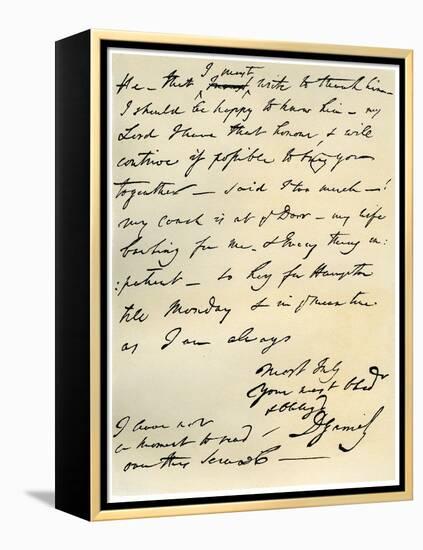 He - that I must write to thank him -
I should be happy to know him - my
Lord I have that honour, & will
contrive if possible to bring you
together - said I too much - !
my coach is at ye Door - my wife
bawling for me, & Every thing im:
:patient - so Hey for Hampton
till Monday & in ye mean time
as I am always
most truly
Your most Obedt
& Oblig'd
D Garrick
I have not
a moment to read
over this Scrawl